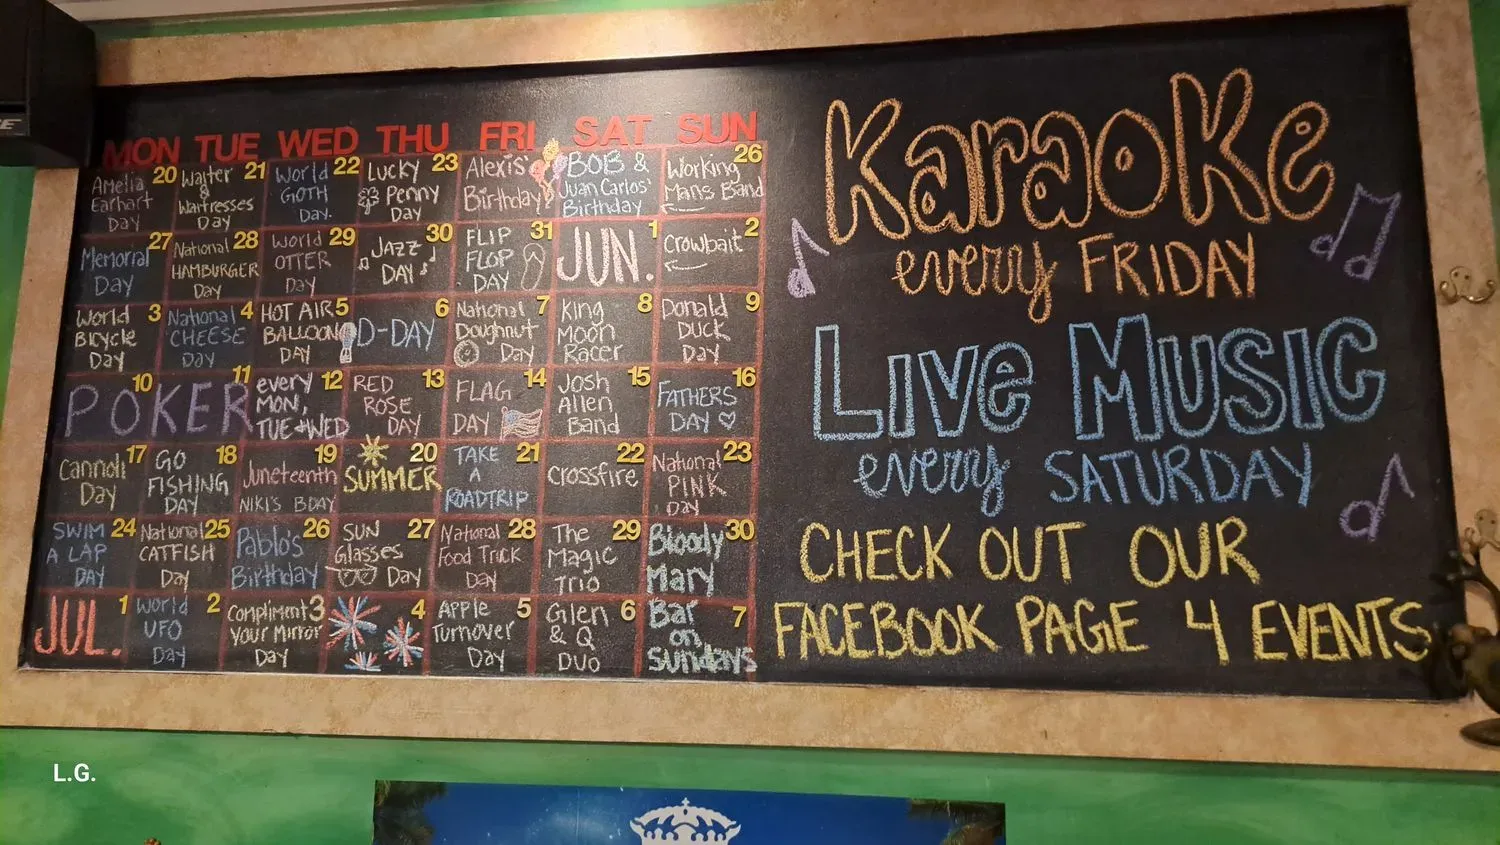 MON TUE WED THU FRI SAT SUN
20
Amelia
Earhart
Day
21
Waiter
&
Waitresses
Day
22
World
GOTH
Day.
23
LUCKY
Penny
DAY
Alexis'
Birthday
BOB &
Juan Carlos'
Birthday
26
Working
Mans Band
27
Memorial
Day
28
National
HAMBURGER
Day
29
World
OTTER
Day
30
JAZZ
DAY
31
FLIP
FLOP
DAY
1
JUN.
2
Crowbait
3
World
Bicycle
Day
4
National
CHEESE
DAY
5
HOT AIR
BALLOON
DAY
6
D-DAY
7
National
Doughnut
Day
8
King
Moon
Racer
9
Donald
DUCK
Day
10
11
POKER
12
every
MON,
TUE+WED
13
RED
ROSE
DAY
14
FLAG
DAY
15
Josh
Allen
Band
16
FATHERS
DAY
17
Cannoli
Day
18
GO
FISHING
DAY
19
Juneteenth
NIKI'S BDAY
20
SUMMER
21
TAKE
A
ROADTRIP
22
Crossfire
23
National
PINK
DAY
24
SWIM
A LAP
DAY
25
National
CATFISH
Day
26
Pablo's
Birthday
27
SUN
Glasses
Day
28
National
Food Truck
Day
29
The
Magic
Trio
30
Bloody
Mary
1
JUL.
2
World
UFO
Day
3
Compliment
Your Mirror
Day
4
5
Apple
Turnover
Day
6
Glen
& Q
DUO
7
Bar
on
Sundays
Karaoke
every FRIDAY
Live MUSIC
every SATURDAY
CHECK OUT OUR
FACEBOOK PAGE 4 EVENTS
L.G.